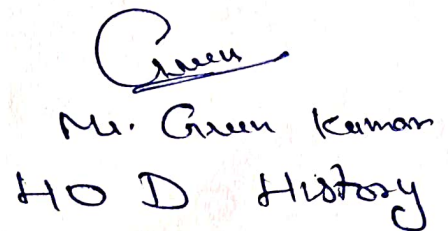 Green
Mr. Green Kumar
HO D History